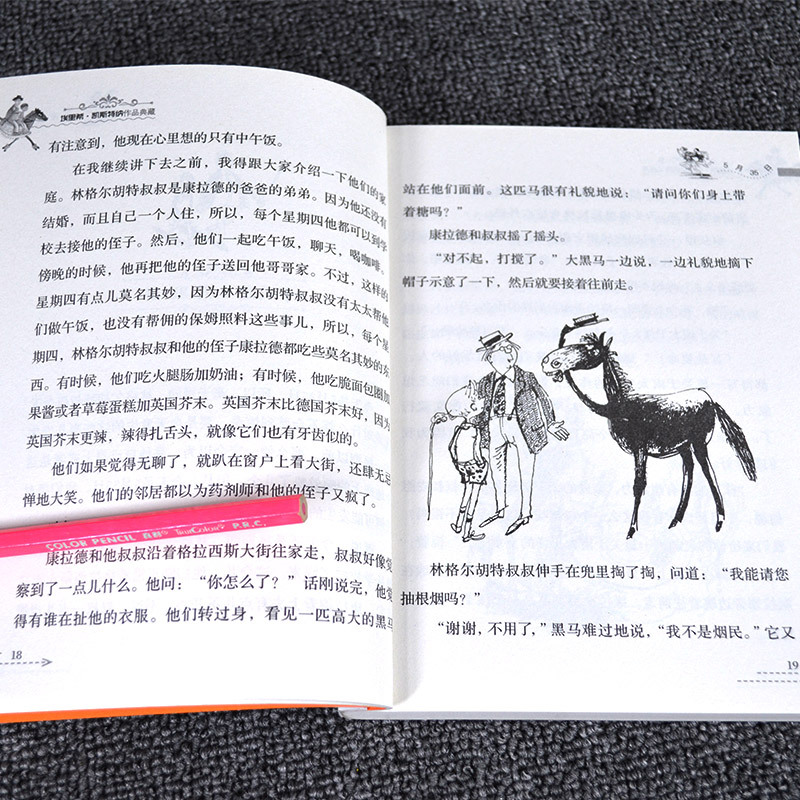 埃里希·凯斯特纳作品典藏
有注意到，他现在心里想的只有中午饭。
在我继续讲下去之前，我得跟大家介绍一下他们的家
庭。林格尔胡特叔叔是康拉德的爸爸的弟弟。因为他还没有
结婚，而且自己一个人住，所以，每个星期四他都可以到学
校去接他的侄子。然后，他们一起吃午饭，聊天，喝咖啡。
傍晚的时候，他再把他的侄子送回他哥哥家。不过，这样的
星期四有点儿莫名其妙，因为林格尔胡特叔叔没有太太帮他
们做午饭，也没有帮佣的保姆照料这些事儿，所以，每个星
期四，林格尔胡特叔叔和他的侄子康拉德都吃些莫名其妙的东
西。有时候，他们吃火腿肠加奶油；有时候，他吃脆面包圈加
果酱或者草莓蛋糕加英国芥末。英国芥末比德国芥末好，因为
英国芥末更辣，辣得扎舌头，就像它们也有牙齿似的。
他们如果觉得无聊了，就趴在窗户上看大街，还肆无忌
惮地大笑。他们的邻居都以为药剂师和他的侄子又疯了。
COLOR PENCIL TrueColour P.R.C.
康拉德和他叔叔沿着格拉西斯大街往家走，叔叔好像觉
察到了一点儿什么。他问：“你怎么了？”话刚说完，他觉
得有谁在扯他的衣服。他们转过身，看见一匹高大的黑马
18
5月35日
站在他们面前。这匹马很有礼貌地说：“请问你们身上带
着糖吗？”
康拉德和叔叔摇了摇头。
“对不起，打搅了。”大黑马一边说，一边礼貌地摘下
帽子示意了一下，然后就要接着往前走。
林格尔胡特叔叔伸手在兜里掏了掏，问道：“我能请您
抽根烟吗？”
“谢谢，不用了，”黑马难过地说，“我不是烟民。”它又
19